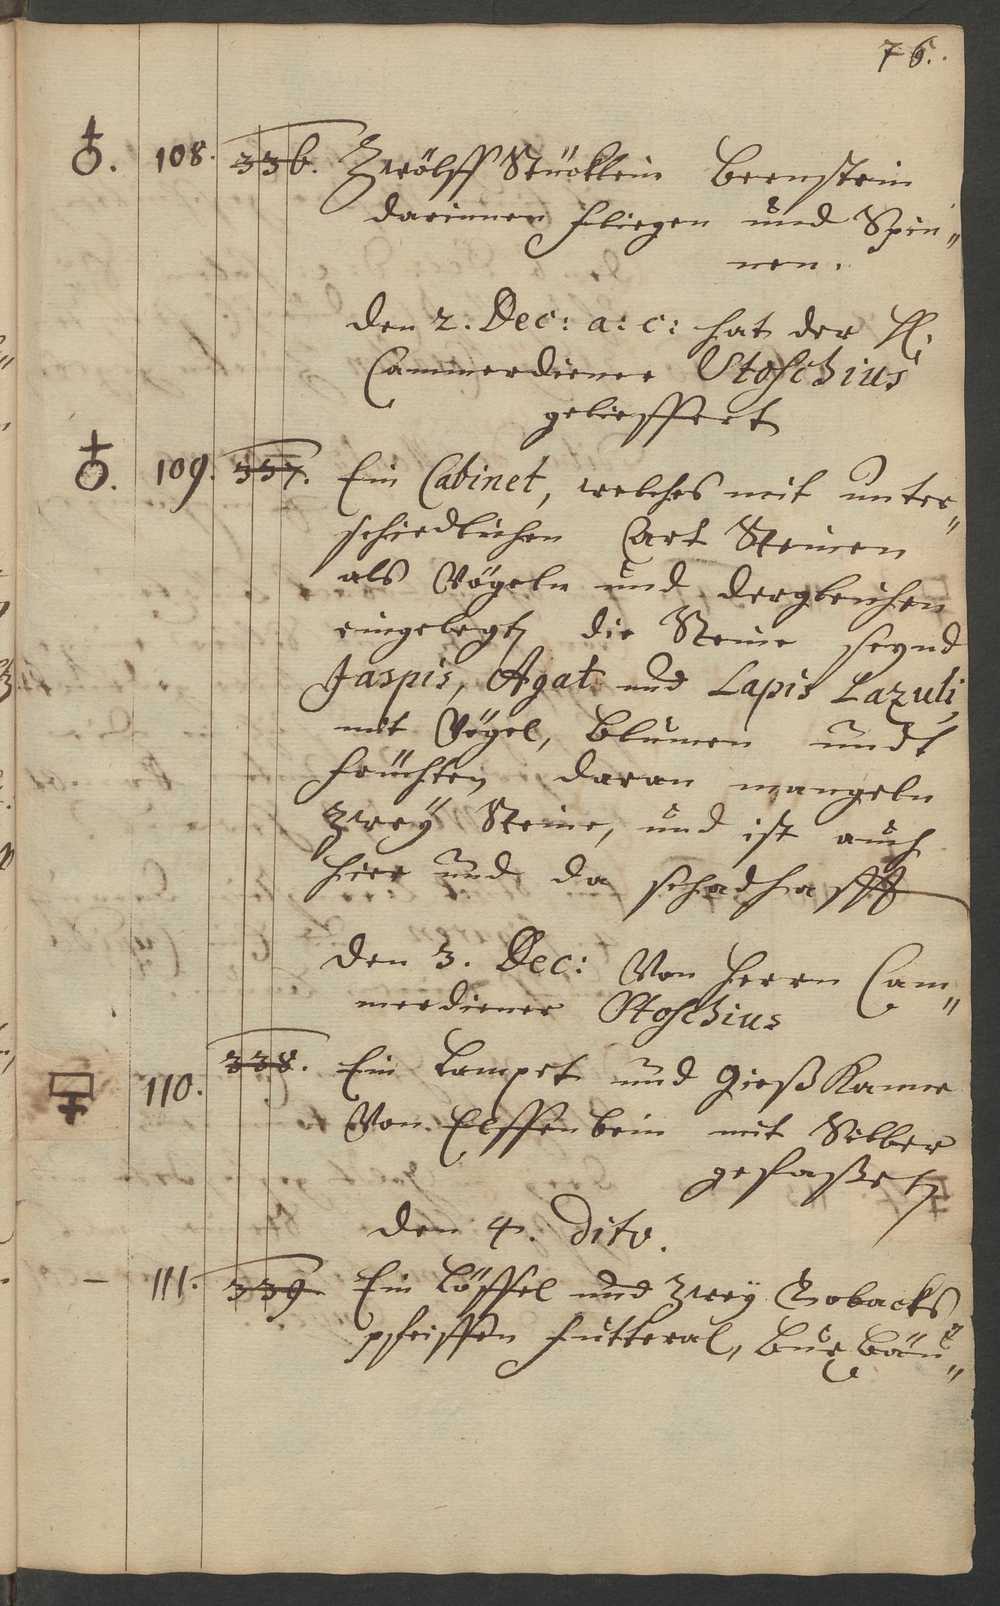 76.
♁. 108. 336. Zwölff Stücklein Bernstein
darinnen Fliegen und Spin„
nen.
den 2. Dec: a: c: hat der H:
Cammerdiener Stoschius
gelieffert
♁. 109. 337. Ein Cabinet, welches mit unter„
schiedlichen Art Steinen
als Vögeln und dergleichen
eingelegt, die Steine seynd
Jaspis, Agat und Lapis Lazuli,
mit Vögel, Blumen undt
Früchten, daran mangeln
zweÿ Steine, und ist auch
hier und da schadhafft
den 3. Dec: Von Herrn Cam„
merdiener Stoschius
110. 338. Ein Lampet und Gieß Kanne
Von Elffenbein mit Silber
gefaßet,
den 4. dito.
– 111. 339. Ein Löffel und zweÿ Tobacks
pfeiffen Futteral, Buxbäu„